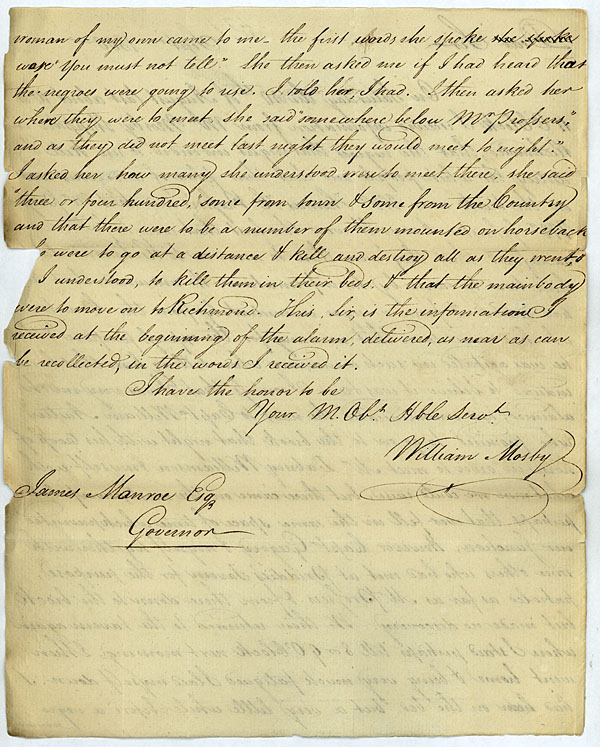 woman of my own came to me – the first words she spoke she spoke
were "You must not tell." She then asked me if I had heard that
the negroes were going to rise. I told her, I had. I then asked her
where they were to meet, she said "somewhere below Mr. Prossers,"
and as they did not meet last night they would meet to night."
I asked her how many she understood were to meet there, she said
"three or four hundred, some from town & some from the Country
and that there were to be a number of them mounted on horseback
were to go at a distance & kill and destroy all as they went, &
I understood, to kill them in their beds. & that the main body
were to move on to Richmond. This, Sir, is the information I
received at the beginning of the alarm, delivered, as near as can
be recollected, in the words I received it.
I have the honor to be
Your M. Obt. Hble Servt.
William Mosby
James Monroe Esqr
Governor